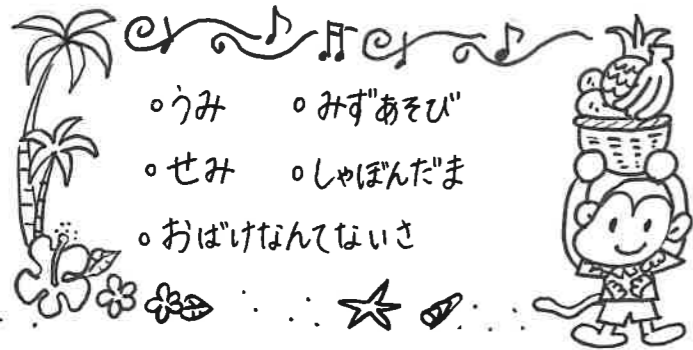 。うみ 。みずあそび
。せみ 。しゃぼんだま
。おばけなんてないさ